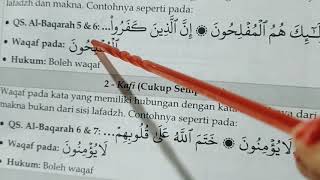 lafadzh dan makna. Contohnya seperti pada:
QS. Al-Baqarah 5 & 6: ...هُمُ الْمُفْلِحُونَ ۞ إِنَّ الَّذِينَ كَفَرُوا
Waqaf pada:
Hukum: Boleh waqaf
2 - Kafi (Cukup Semp
Waqaf pada kata yang memiliki hubungan dengan kata
makna bukan dari sisi lafadzh. Contohnya seperti pada:
QS. Al-Baqarah 6 & 7: ...لَا يُؤْمِنُونَ ۞ خَتَمَ اللَّهُ عَلَىٰ قُلُوبِهِمْ
Waqaf pada: لَا يُؤْمِنُونَ
Hukum: Boleh waqaf